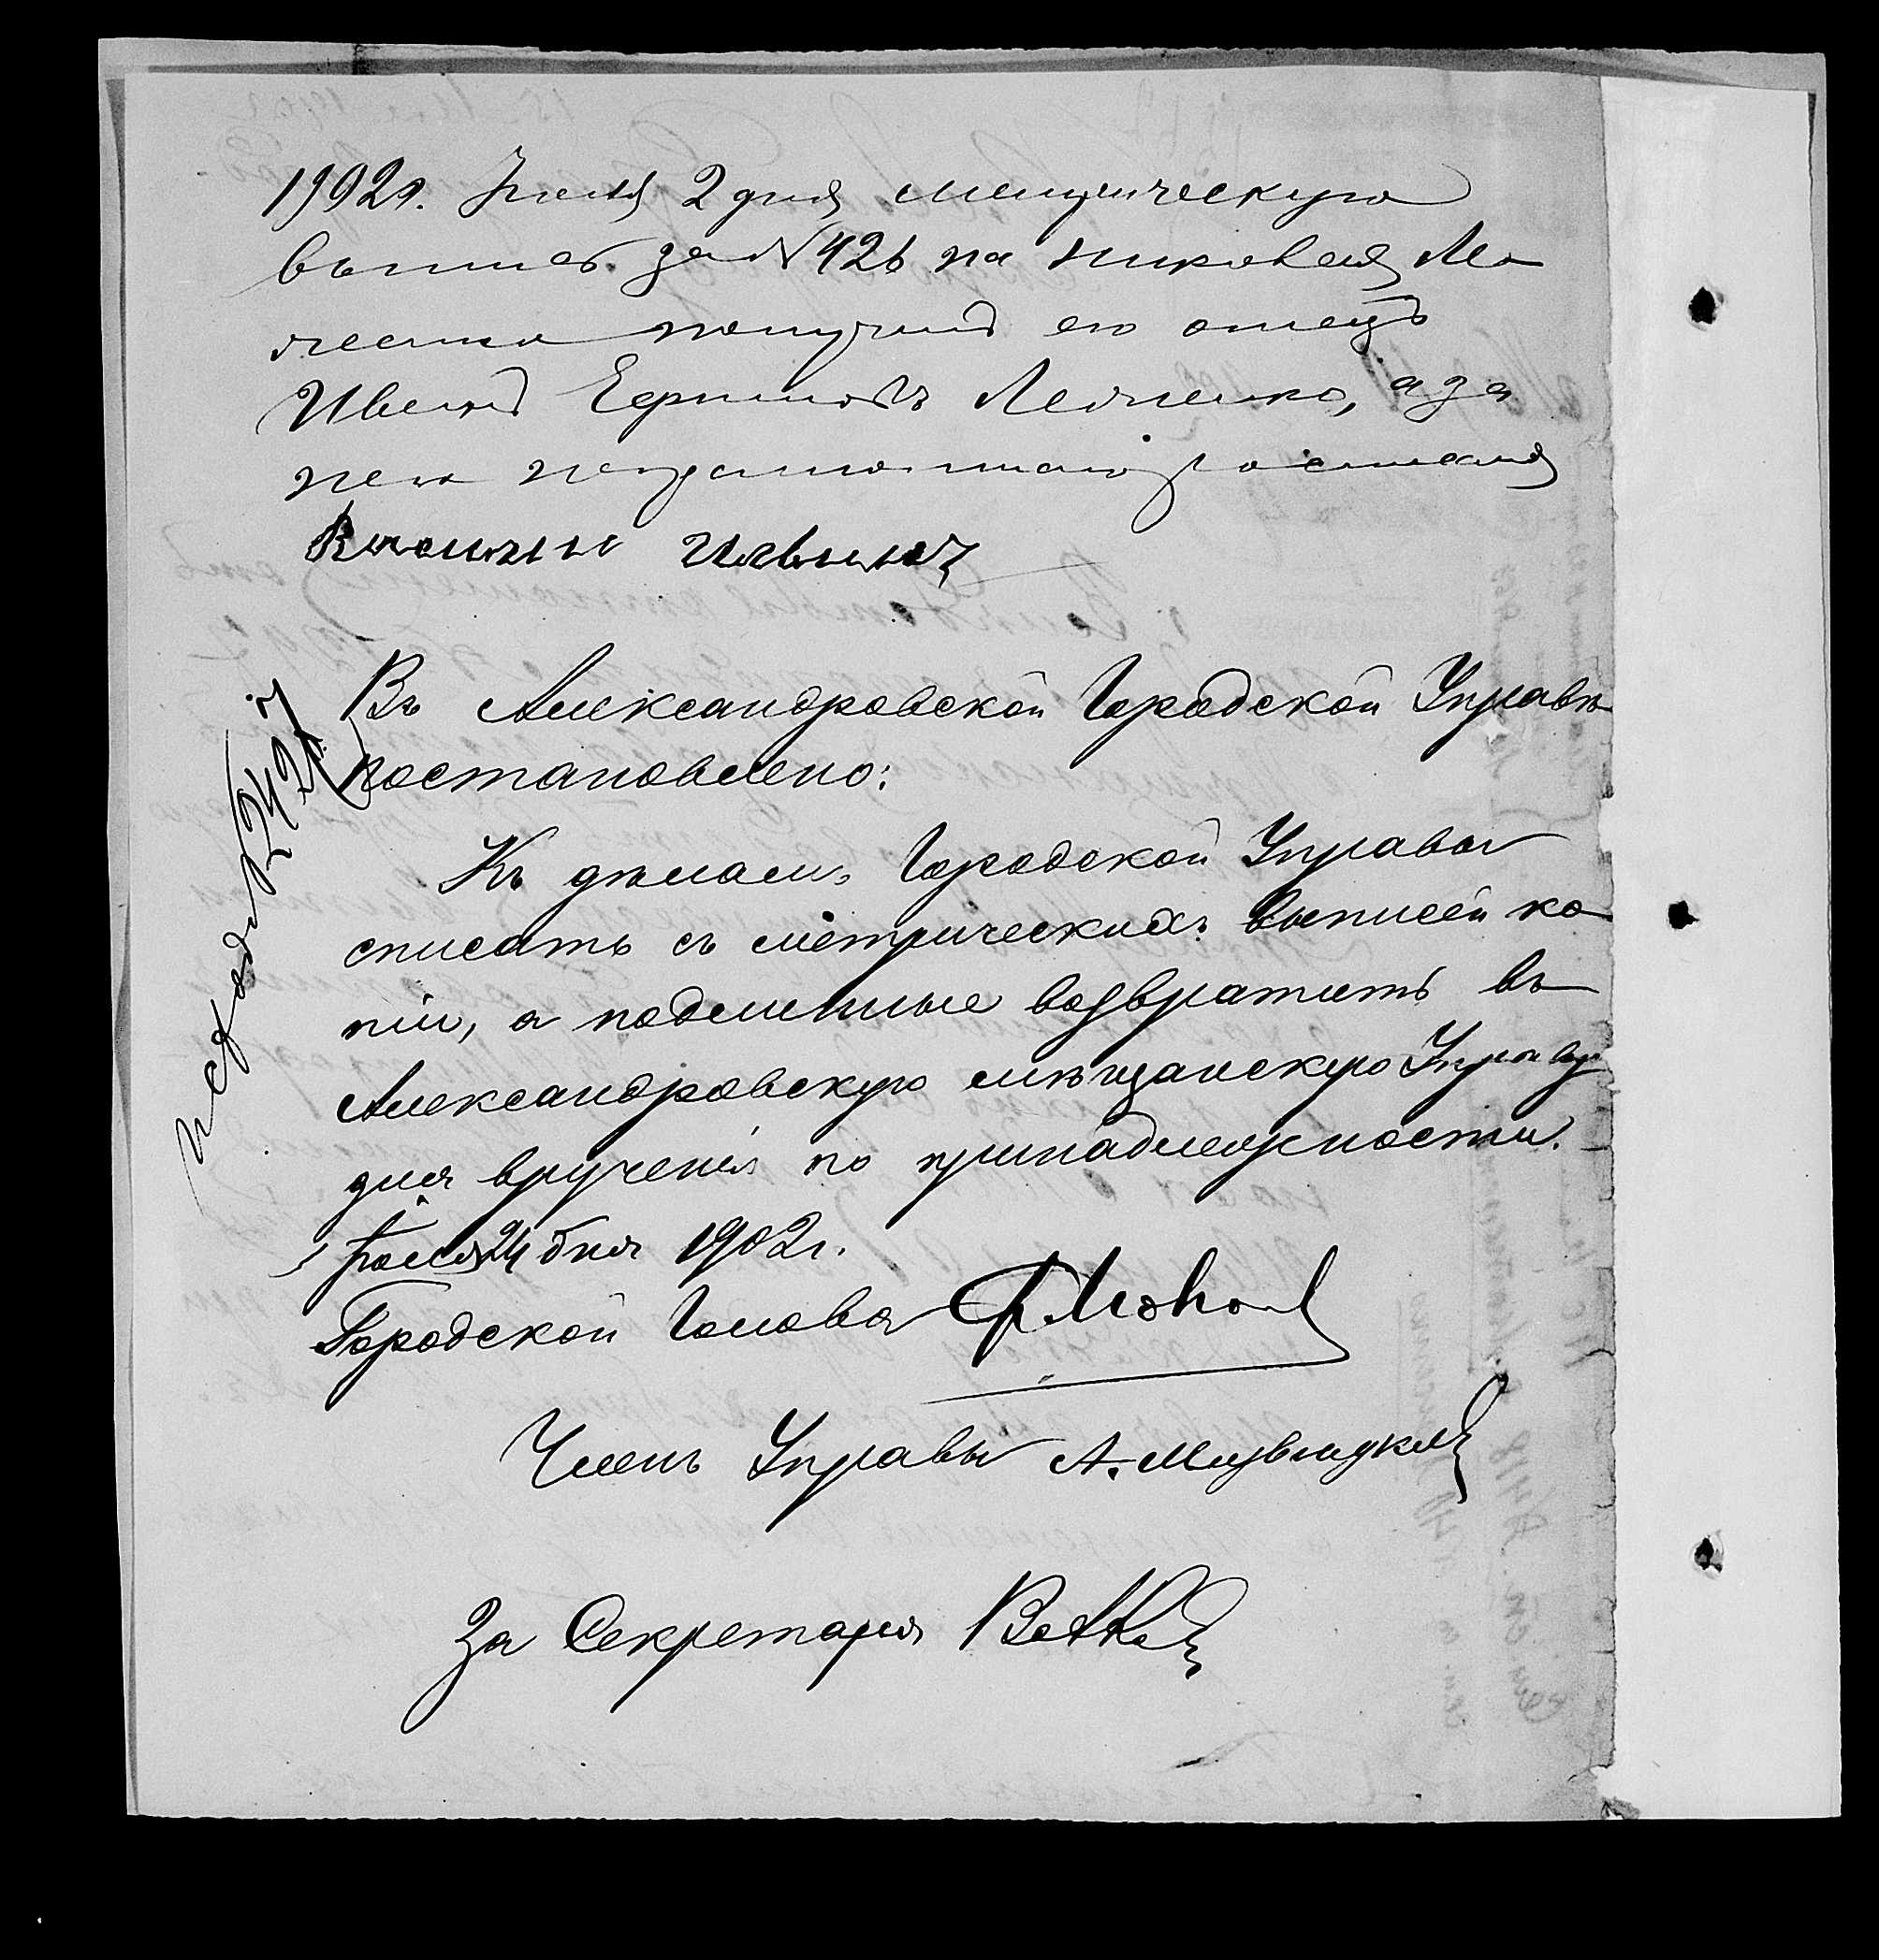 1902 г. Іюля 2 дня метрическую
выпись за № 426 на Николая Ле
получилъ его отецъ
Иванъ Ефимовъ, а за
него неграмотнаго росписался
Въ Александровской Городской Управѣ
постановлено:
Къ дѣламъ Городской Управы
списать съ метрическихъ выписей ко
піи, а подлинные возвратить въ
Александровскую мѣщанскую Управу
для врученія по принадлежности.
Іюля 24 дня 1902 г.
Городской Голова
Членъ Управы А.
За Секретаря
исход. № 2427